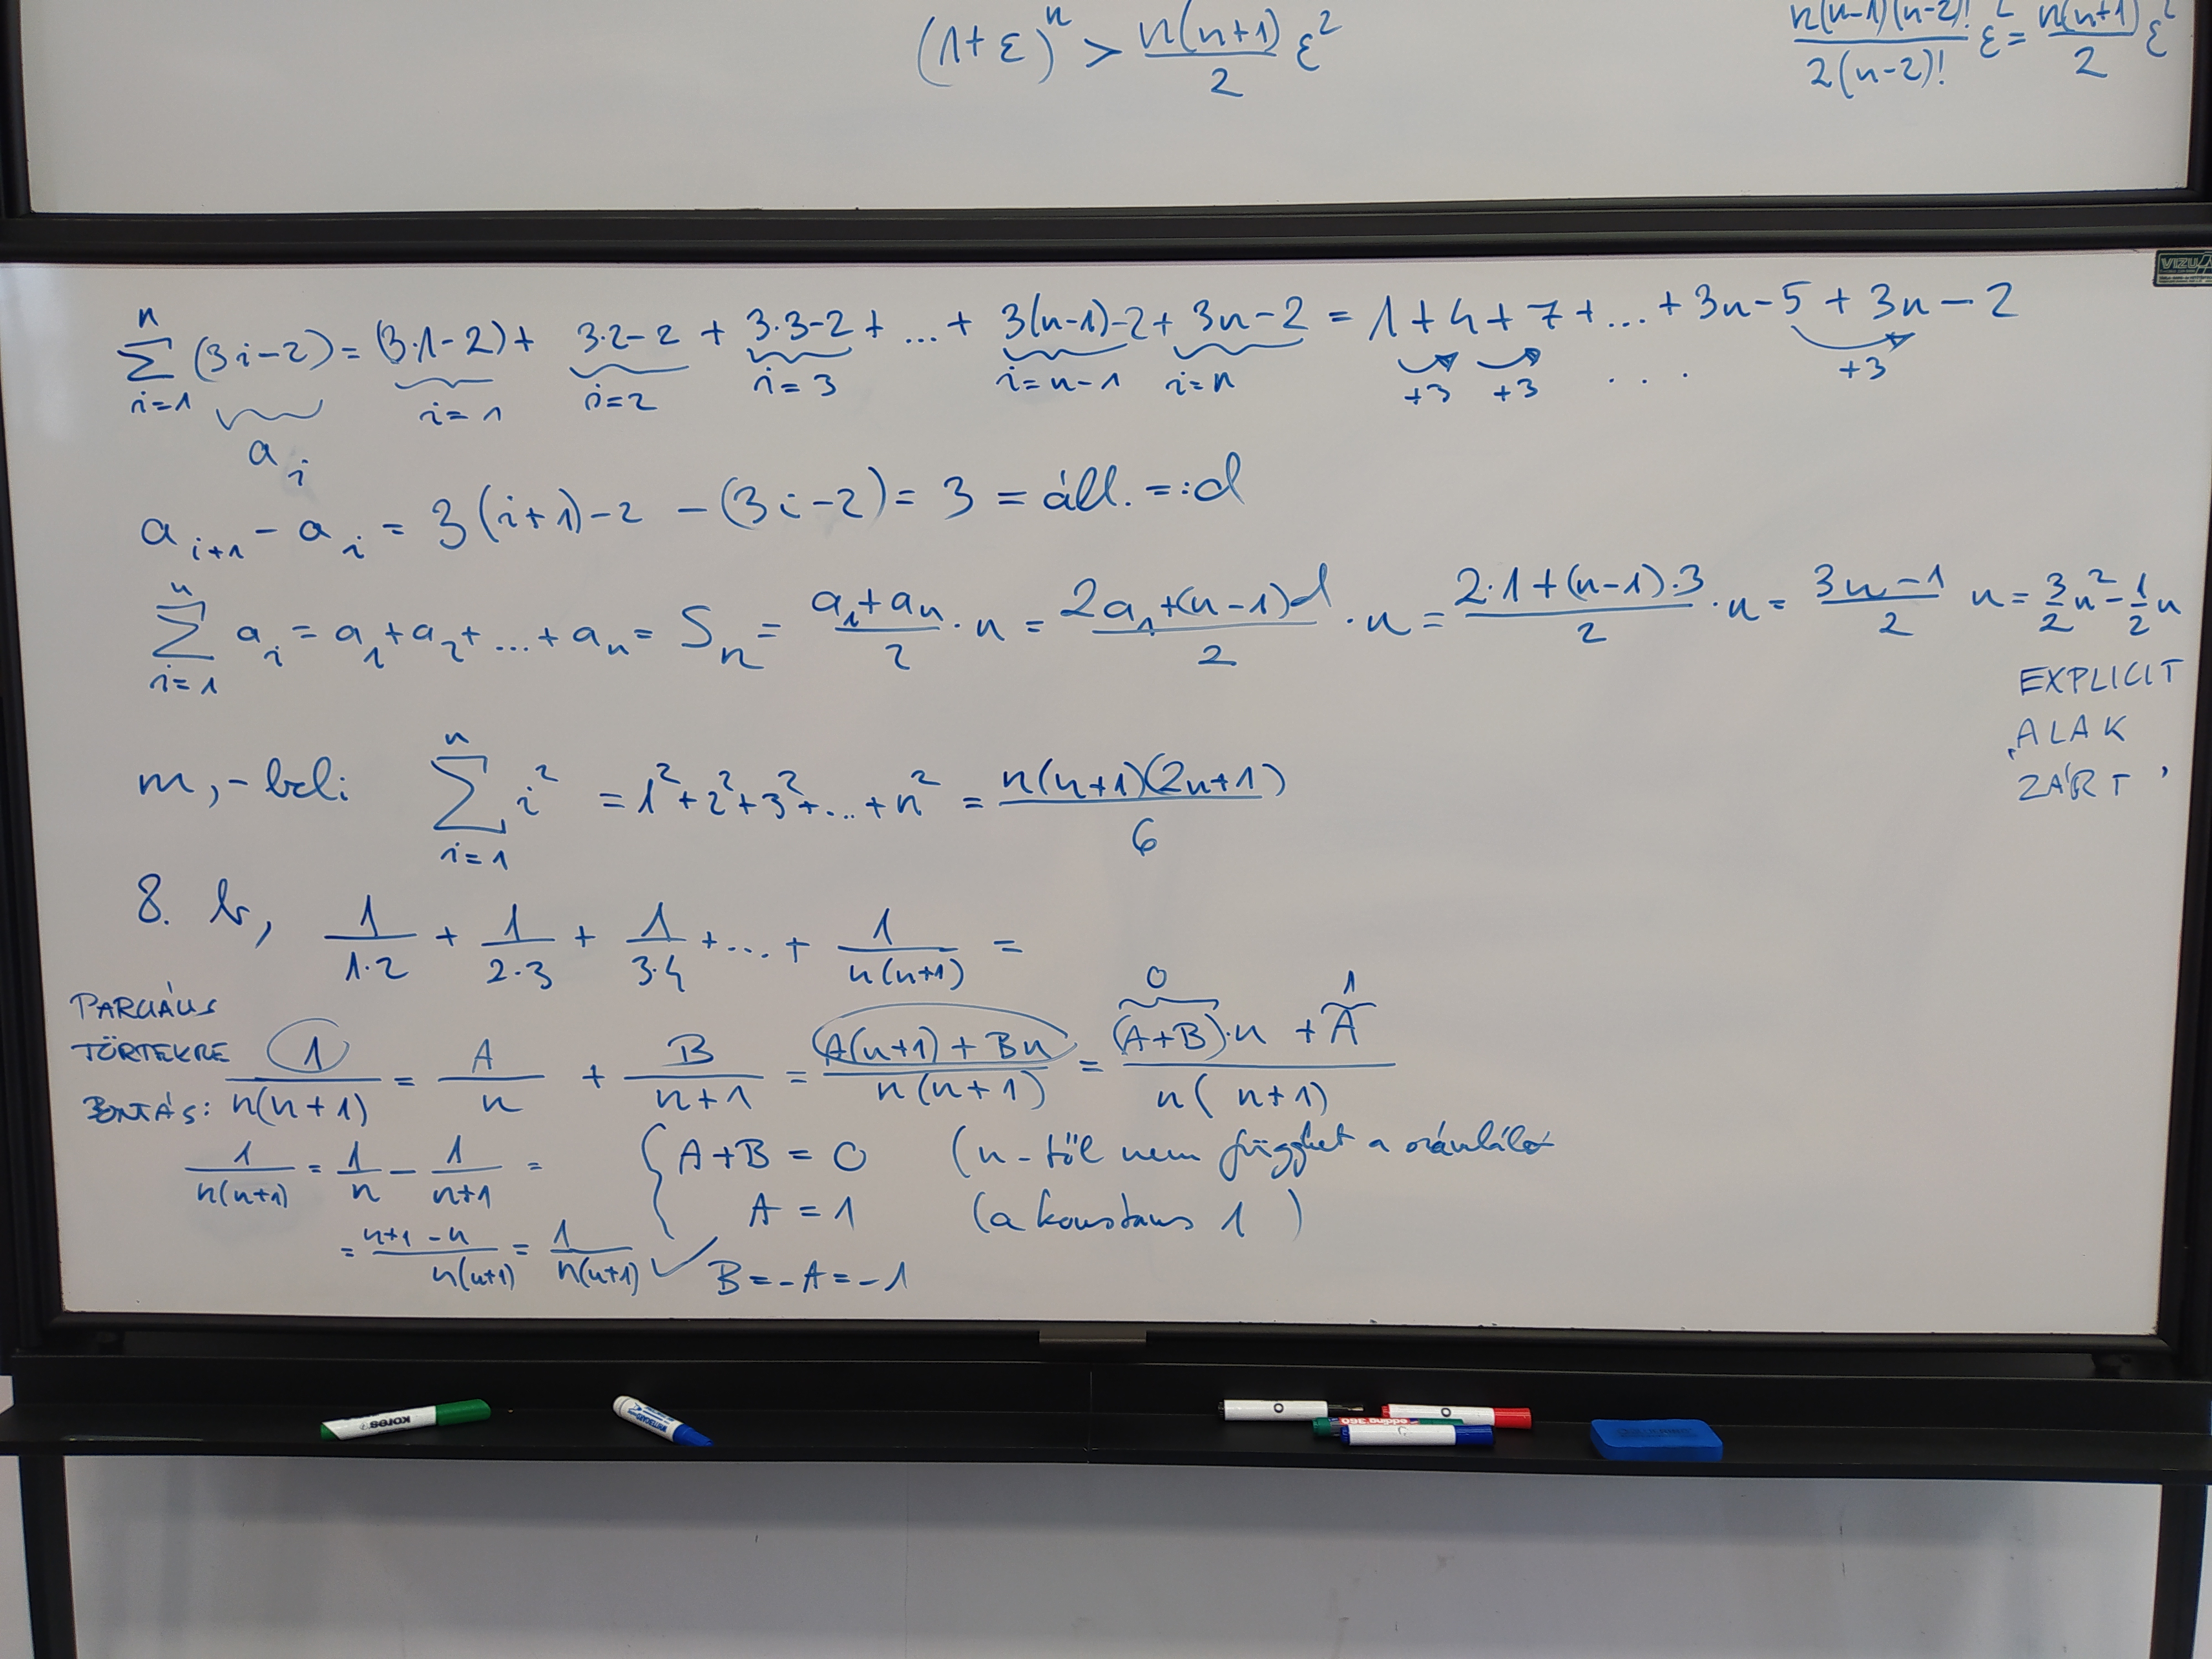 (1+ε)^n > n(n+1)/2 ε^2
n(n-1)(n-2)!/2(n-2)! ε^2 = n(n+1)/2 ε^2
VIZU
n
∑ (3i-2) = (3·1-2) + 3·2-2 + 3·3-2 + ... + 3(n-1)-2 + 3n-2 = 1+4+7+...+3n-5+3n-2
i=1 i=1 i=2 i=3 i=n-1 i=n +3 +3 ... +3
a_i
a_{i+1} - a_i = 3(i+1)-2 -(3i-2) = 3 = áll. =:d
n
∑ a_i = a_1+a_2+...+a_n = S_n = (a_1+a_n)/2 · n = (2a_1+(n-1)d)/2 · n = (2·1+(n-1)·3)/2 · n = (3n-1)/2 n = 3/2 n^2 - 1/2 n
i=1
EXPLICIT
ALAK
ZÁRT
n
m,-beli ∑ i^2 = 1^2+2^2+3^2+...+n^2 = n(n+1)(2n+1)/6
i=1
8. b, 1/1·2 + 1/2·3 + 1/3·4 + ... + 1/n(n+1) =
PARCIÁLIS
TÖRTEKRE
BONTÁS:
0 1
1/n(n+1) = A/n + B/n+1 = (A(n+1)+Bn)/n(n+1) = ((A+B)·n + A)/n(n+1)
1/n(n+1) = 1/n - 1/n+1 =
= (n+1-n)/n(n+1) = 1/n(n+1) ✓
{ A+B = 0 (n-től nem függhet a számláló
A = 1 (a konstans 1)
B = -A = -1
kores
edding 360